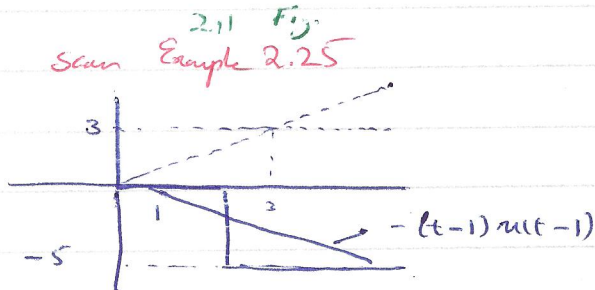 2.11 Fig.
Scan Example 2.25
3
1 3
-(t-1) u(t-1)
-5